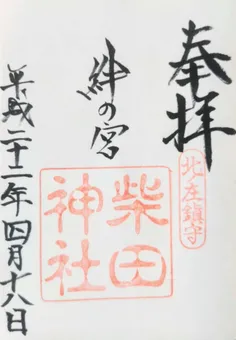 奉拝
北左鎮守
絆の宮
柴田神社
平成二十一年四月十八日